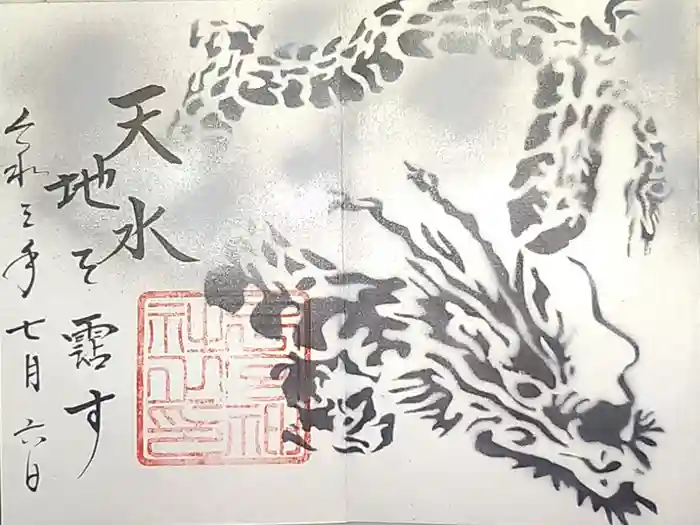 天水
地を霑す
令和三年七月六日